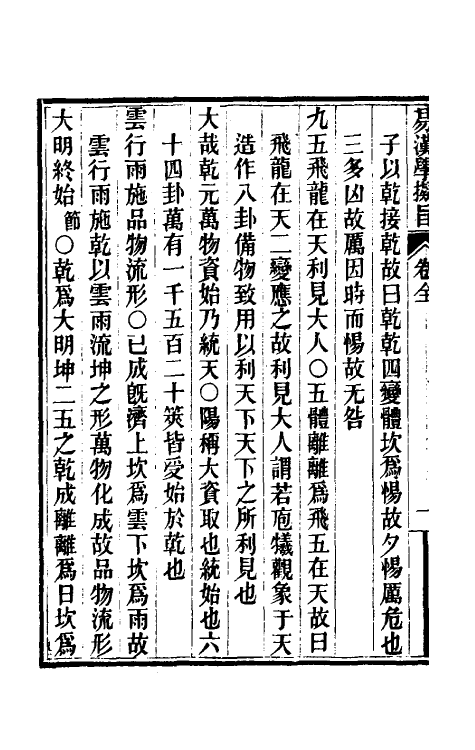 易漢學擬旨 卷全 一
子以乾接乾故曰乾乾四變體坎爲惕故夕惕厲危也
三多凶故厲因時而惕故无咎
九五飛龍在天利見大人〇五體離離爲飛五在天故曰
飛龍在天二變應之故利見大人謂若庖犧觀象于天
造作八卦備物致用以利天下天下之所利見也
大哉乾元萬物資始乃統天〇陽稱大資取也統始也六
十四卦萬有一千五百二十筴皆受始於乾也
雲行雨施品物流形〇已成旣濟上坎爲雲下坎爲雨故
雲行雨施乾以雲雨流坤之形萬物化成故品物流形
大明終始節〇乾爲大明坤二五之乾成離離爲日坎爲